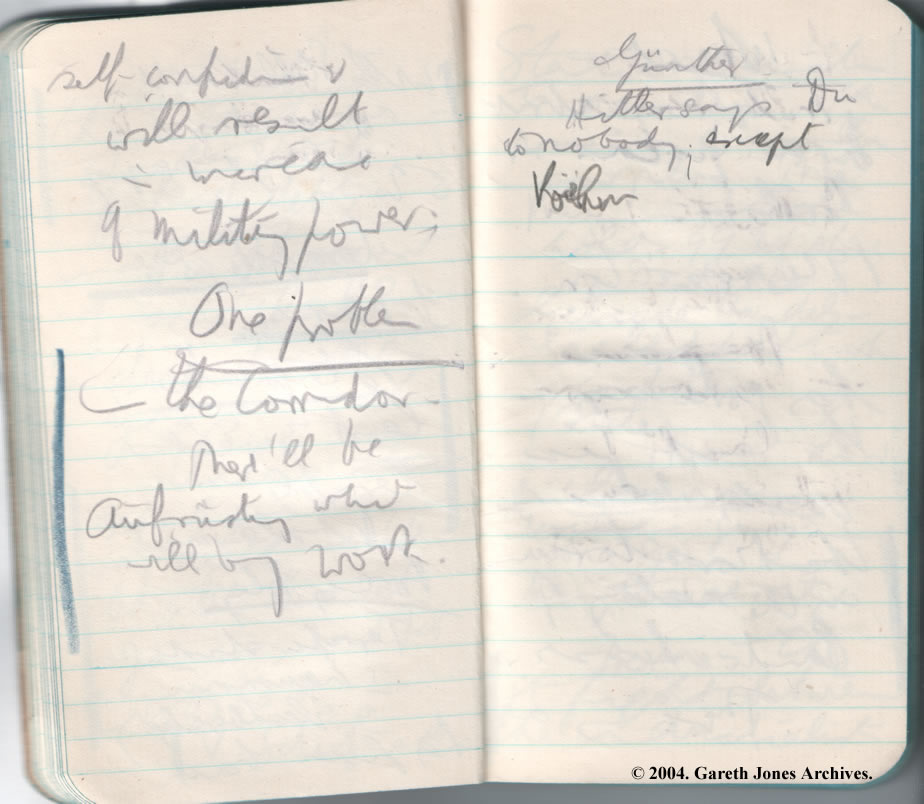 self-confidence &
will result
in increase
of military power;
One problem
the Corridor.
There'll be
Aufrüstung which
will bring work.
Günther
Hitler says Du
to nobody; except
Röhm
© 2004. Gareth Jones Archives.